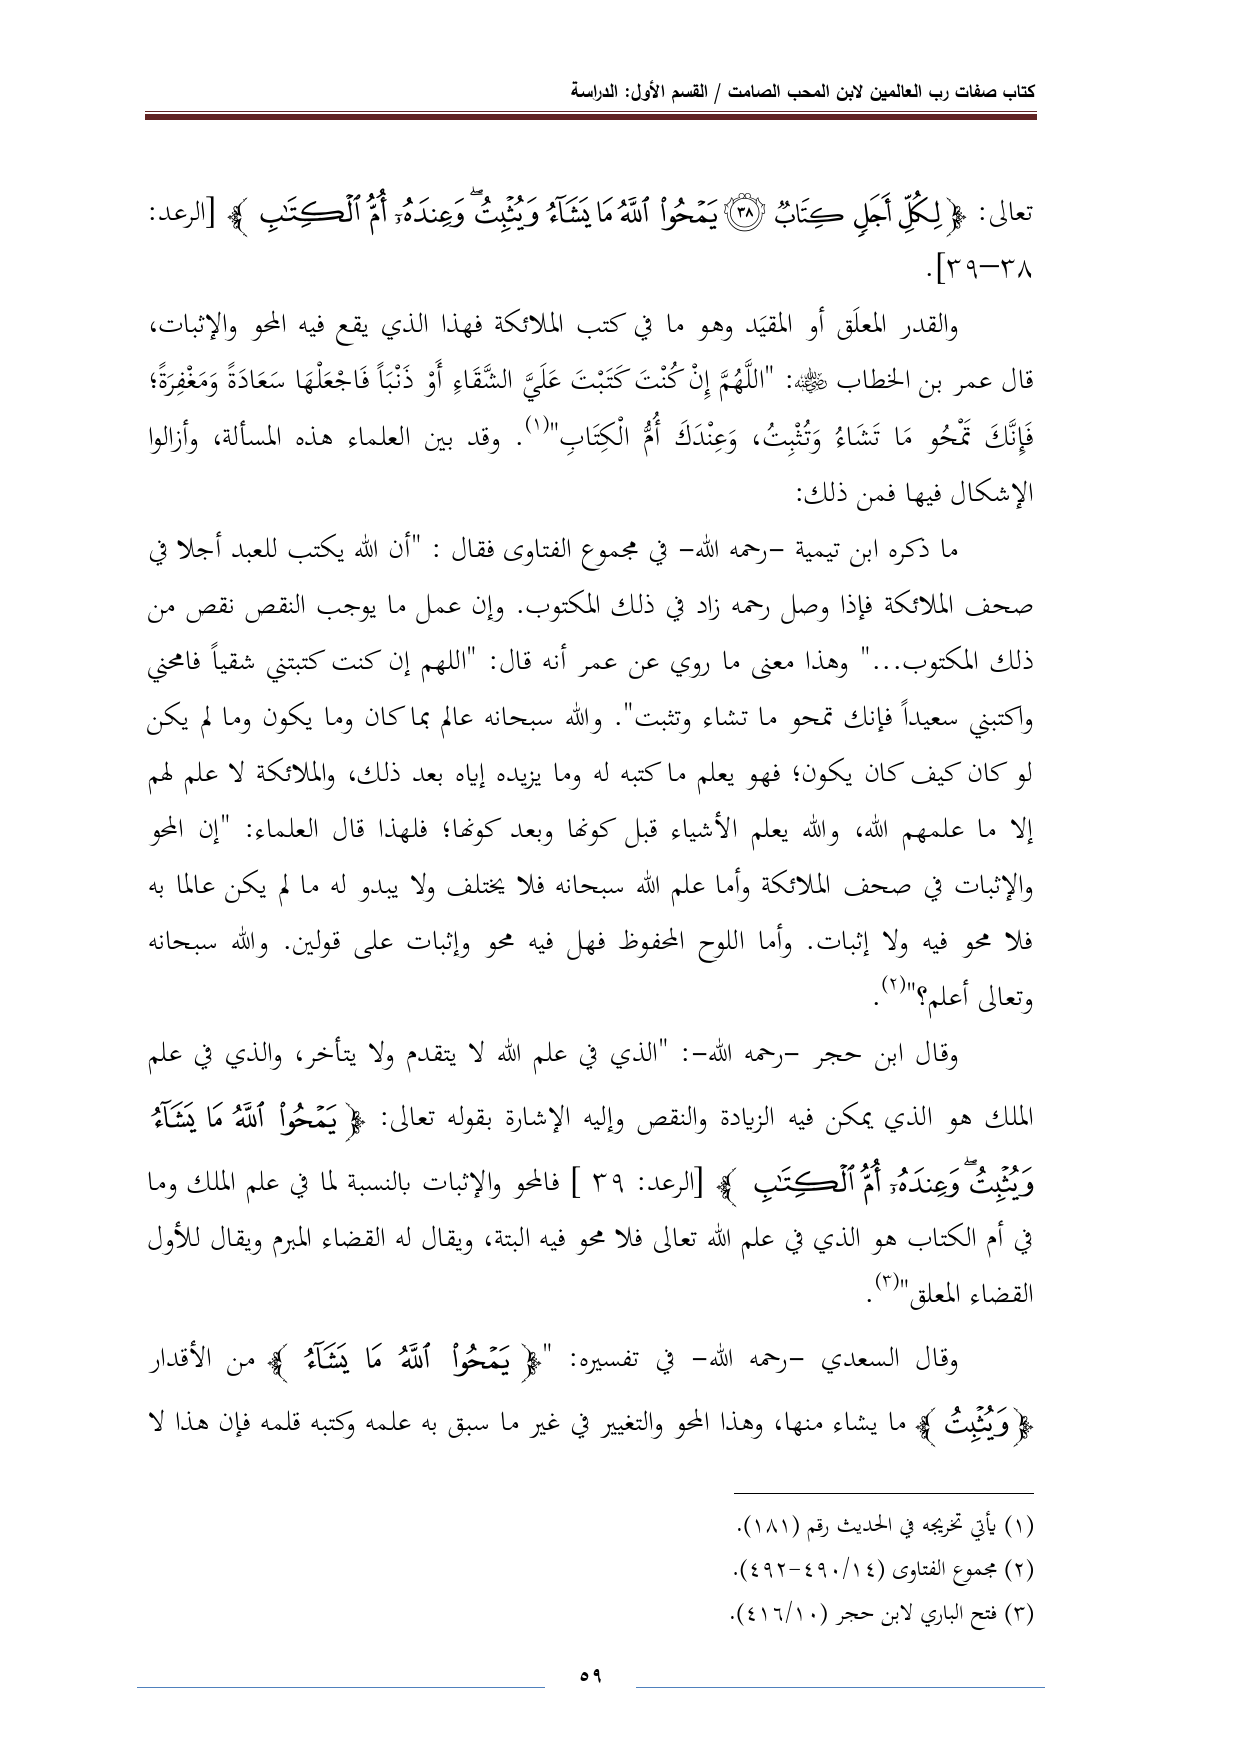 كتاب صفات رب العالمين لابن المحب الصامت / القسم الأول: الدراسة
تعالى: ﴿ لِكُلِّ أَجَلٍ كِتَابٌ ٣٨ يَمْحُوا۟ ٱللَّهُ مَا يَشَآءُ وَيُثْبِتُ ۖ وَعِندَهُۥٓ أُمُّ ٱلْكِتَٰبِ ﴾ [الرعد:
٣٨–٣٩].
والقدر المعلَق أو المقيَد وهو ما في كتب الملائكة فهذا الذي يقع فيه المحو والإثبات،
قال عمر بن الخطاب ﵁: "اللَّهُمَّ إِنْ كُنْتَ كَتَبْتَ عَلَيَّ الشَّقَاءِ أَوْ ذَنْبَاً فَاجْعَلْهَا سَعَادَةً وَمَغْفِرَةً؛
فَإِنَّكَ تَمْحُو مَا تَشَاءُ وَتُثْبِتُ، وَعِنْدَكَ أُمُّ الْكِتَابِ"(١). وقد بين العلماء هذه المسألة، وأزالوا
الإشكال فيها فمن ذلك:
ما ذكره ابن تيمية –رحمه الله– في مجموع الفتاوى فقال : "أن الله يكتب للعبد أجلا في
صحف الملائكة فإذا وصل رحمه زاد في ذلك المكتوب. وإن عمل ما يوجب النقص نقص من
ذلك المكتوب..." وهذا معنى ما روي عن عمر أنه قال: "اللهم إن كنت كتبتني شقياً فامحني
واكتبني سعيداً فإنك تمحو ما تشاء وتثبت". والله سبحانه عالم بما كان وما يكون وما لم يكن
لو كان كيف كان يكون؛ فهو يعلم ما كتبه له وما يزيده إياه بعد ذلك، والملائكة لا علم لهم
إلا ما علمهم الله، والله يعلم الأشياء قبل كونها وبعد كونها؛ فلهذا قال العلماء: "إن المحو
والإثبات في صحف الملائكة وأما علم الله سبحانه فلا يختلف ولا يبدو له ما لم يكن عالما به
فلا محو فيه ولا إثبات. وأما اللوح المحفوظ فهل فيه محو وإثبات على قولين. والله سبحانه
وتعالى أعلم؟"(٢).
وقال ابن حجر –رحمه الله–: "الذي في علم الله لا يتقدم ولا يتأخر، والذي في علم
الملك هو الذي يمكن فيه الزيادة والنقص وإليه الإشارة بقوله تعالى: ﴿ يَمْحُوا۟ ٱللَّهُ مَا يَشَآءُ
وَيُثْبِتُ ۖ وَعِندَهُۥٓ أُمُّ ٱلْكِتَٰبِ ﴾ [الرعد: ٣٩ ] فالمحو والإثبات بالنسبة لما في علم الملك وما
في أم الكتاب هو الذي في علم الله تعالى فلا محو فيه البتة، ويقال له القضاء المبرم ويقال للأول
القضاء المعلق"(٣).
وقال السعدي –رحمه الله– في تفسيره: "﴿ يَمْحُوا۟ ٱللَّهُ مَا يَشَآءُ ﴾ من الأقدار
﴿ وَيُثْبِتُ ﴾ ما يشاء منها، وهذا المحو والتغيير في غير ما سبق به علمه وكتبه قلمه فإن هذا لا
(١) يأتي تخريجه في الحديث رقم (١٨١).
(٢) مجموع الفتاوى (١٤/٤٩٠-٤٩٢).
(٣) فتح الباري لابن حجر (١٠/٤١٦).
٥٩